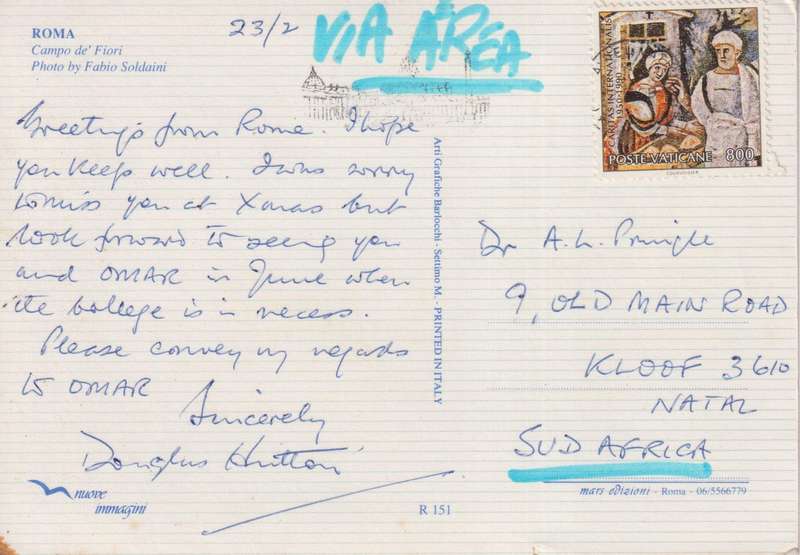 ROMA
Campo de' Fiori
Photo by Fabio Soldaini
23/2
VIA AEREA
CARITAS INTERNATIONALIS
1950-1990
POSTE VATICANE 800
COURVOISIER
Greetings from Rome. I hope
you keep well. I was sorry
to miss you at Xmas but
look forward to seeing you
and OMAR in June when
the College is in recess.
Please convey my regards
to OMAR
Sincerely
Douglas
nuove
immagini
Arti Grafiche Barlocchi - Settimo M. - PRINTED IN ITALY
R 151
Dr A.L. Pringle
9, OLD MAIN ROAD
KLOOF 3610
NATAL
SUD AFRICA
mars edizioni - Roma - 06/5566779